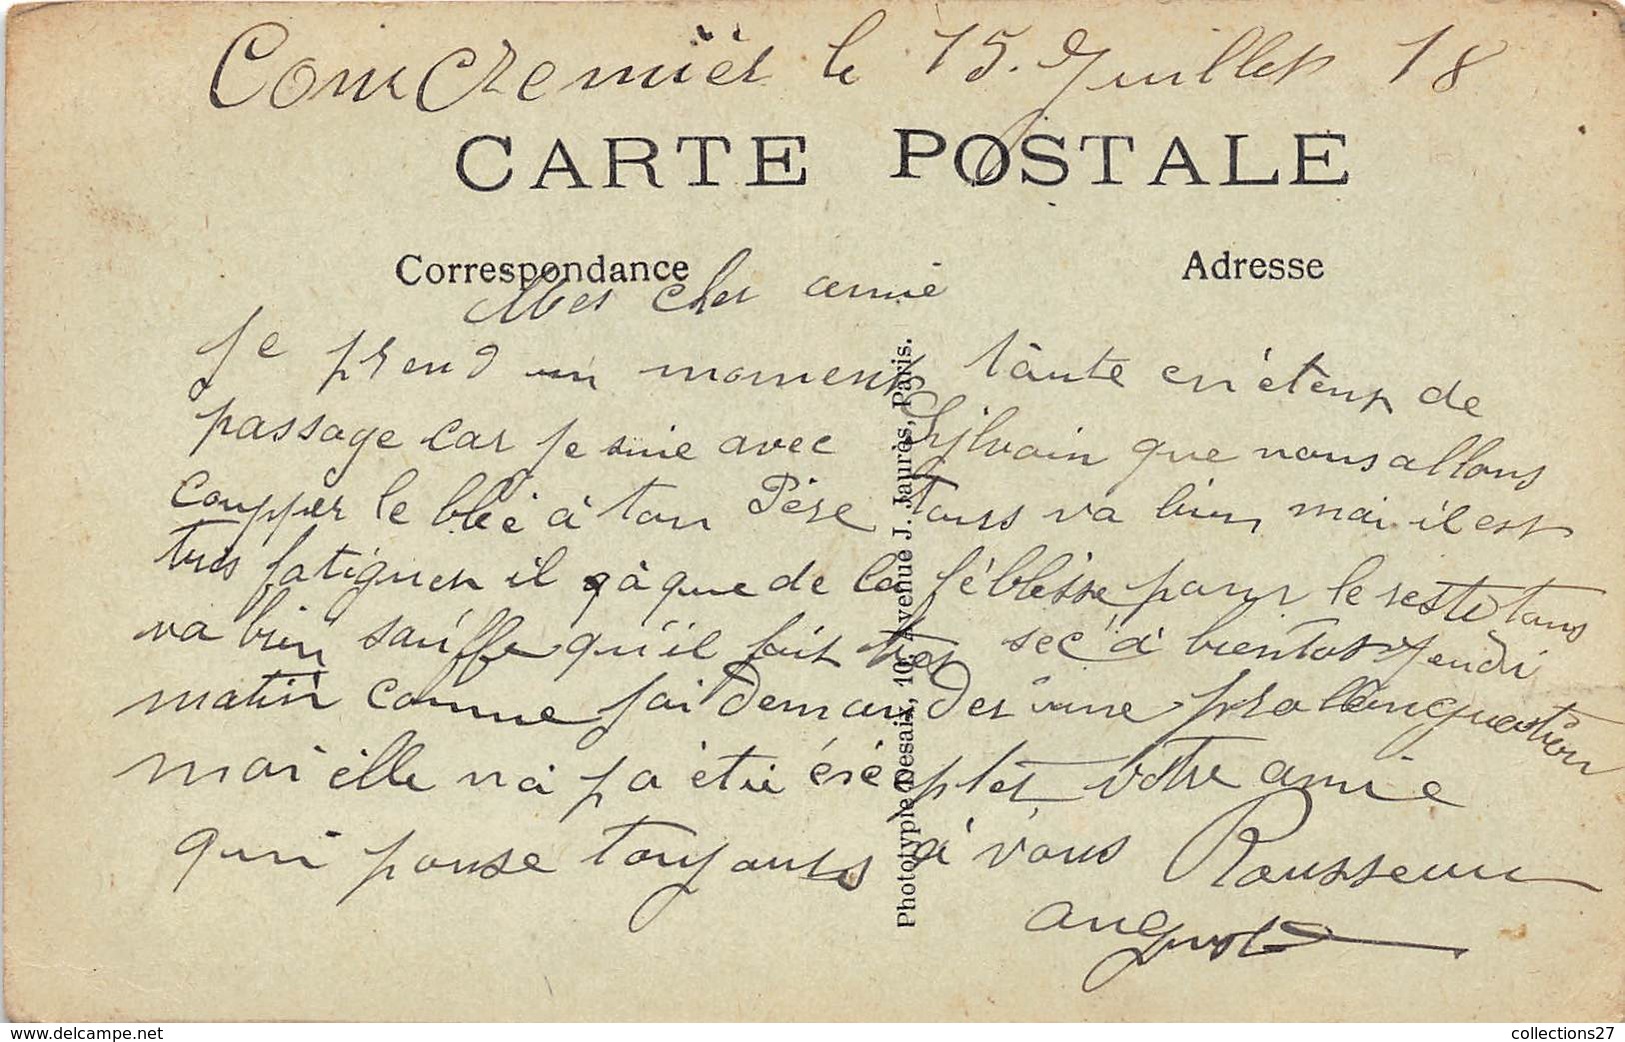 Concremiers le 15 Juillet 18
CARTE POSTALE
Correspondance
Adresse
Mes cher amie
Je prend un moment
passage car je suie avec Sylvain que nous allons
coupper le bleé à ton Père tous va bien mai il est
très fatiguer il ÿ à que de la féblèsse pour le reste tous
va bien sauffe qu'il fait tres sec à bientot jeudi
matin comme j'ai demander une
mai elle n'a pa étié votre amie
qui panse toujours à vous Rousseau
august
Phototypie Desaix, 10, Avenue J. Jaurès, Paris.
collections27
www.delcampe.net